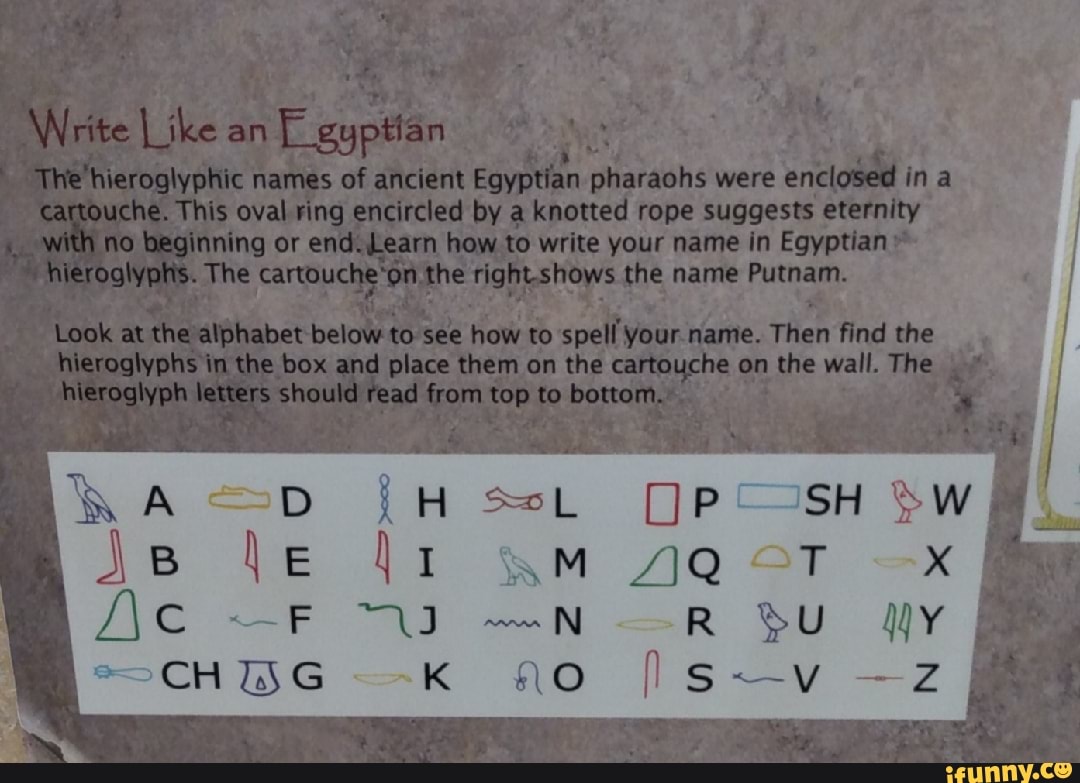 Write Like an Egyptian
The hieroglyphic names of ancient Egyptian pharaohs were enclosed in a
cartouche. This oval ring encircled by a knotted rope suggests eternity
with no beginning or end. Learn how to write your name in Egyptian
hieroglyphs. The cartouche on the right shows the name Putnam.
Look at the alphabet below to see how to spell your name. Then find the
hieroglyphs in the box and place them on the cartouche on the wall. The
hieroglyph letters should read from top to bottom.
A D H L P SH W
B E I M Q T X
C F J N R U Y
CH G K O S V Z
ifunny.co